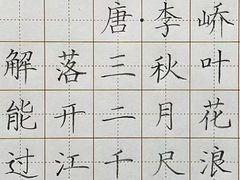 唐·李峤
解落三秋叶
能开二月花
过江千尺浪